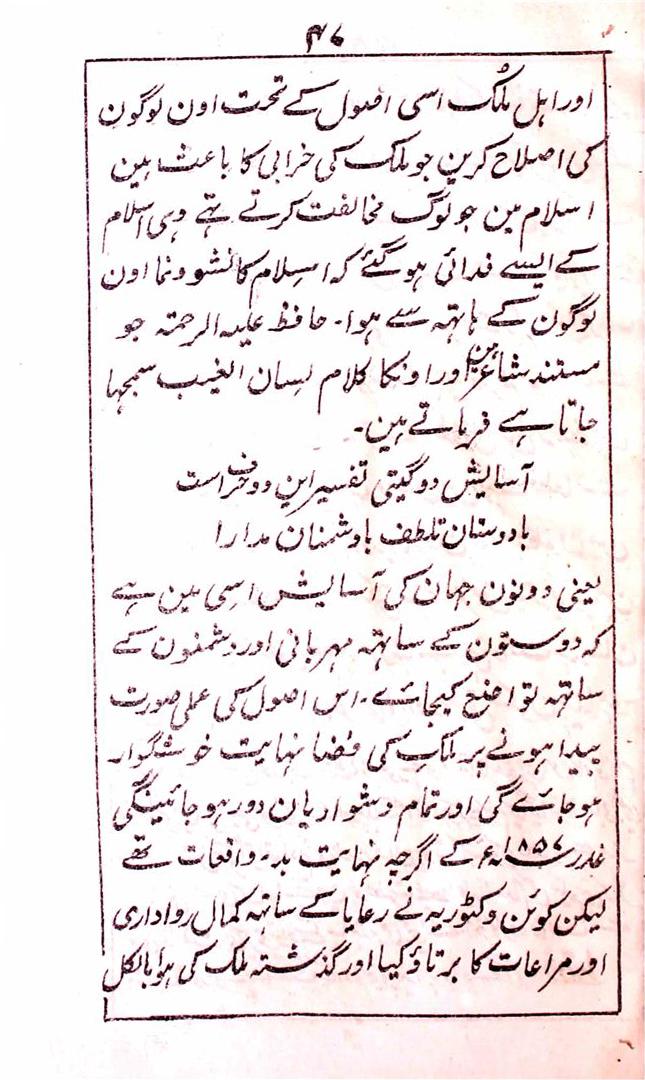 ۴۷
اور اہل ملک اسی اصول کے تحت اون لوگون
کی اصلاح کرین جو ملک کی خرابی کا باعث ہین
اسلام مین جو لوگ مخالفت کرتے تہے وہی اسلام
کے ایسے فدائی ہوگئے کہ اسلام کا نشوونما اون
لوگون کے ہاتہہ سے ہوا۔ حافظ علیہ الرحمۃ جو
مستند شاعر ہین اور اونکا کلام لسان الغیب سمجہا
جاتا ہے فرماتے ہین۔
آسایش دو گیتی تفسیر این دو حرف است
بادوستان تلطف بادشمنان مدارا
یعنی دونون جہان کی آسایش اسی مین ہے
کہ دوستون کے ساتہہ مہربانی اور دشمنون کے
ساتہہ تواضع کیجائے۔ اس اصول کی عملی صورت
پیدا ہونے پر ملک کی فضا نہایت خوشگوار
ہوجائے گی اور تمام دشواریان دور ہوجائینگی
غدر ۱۸۵۷ء کے اگرچہ نہایت بد۔ واقعات تھے
لیکن کوئن وکٹوریہ نے رعایا کے ساتہہ کمال رواداری
اور مراعات کا برتاؤ کیا اور گذشتہ ملک کی ہوا بالکل